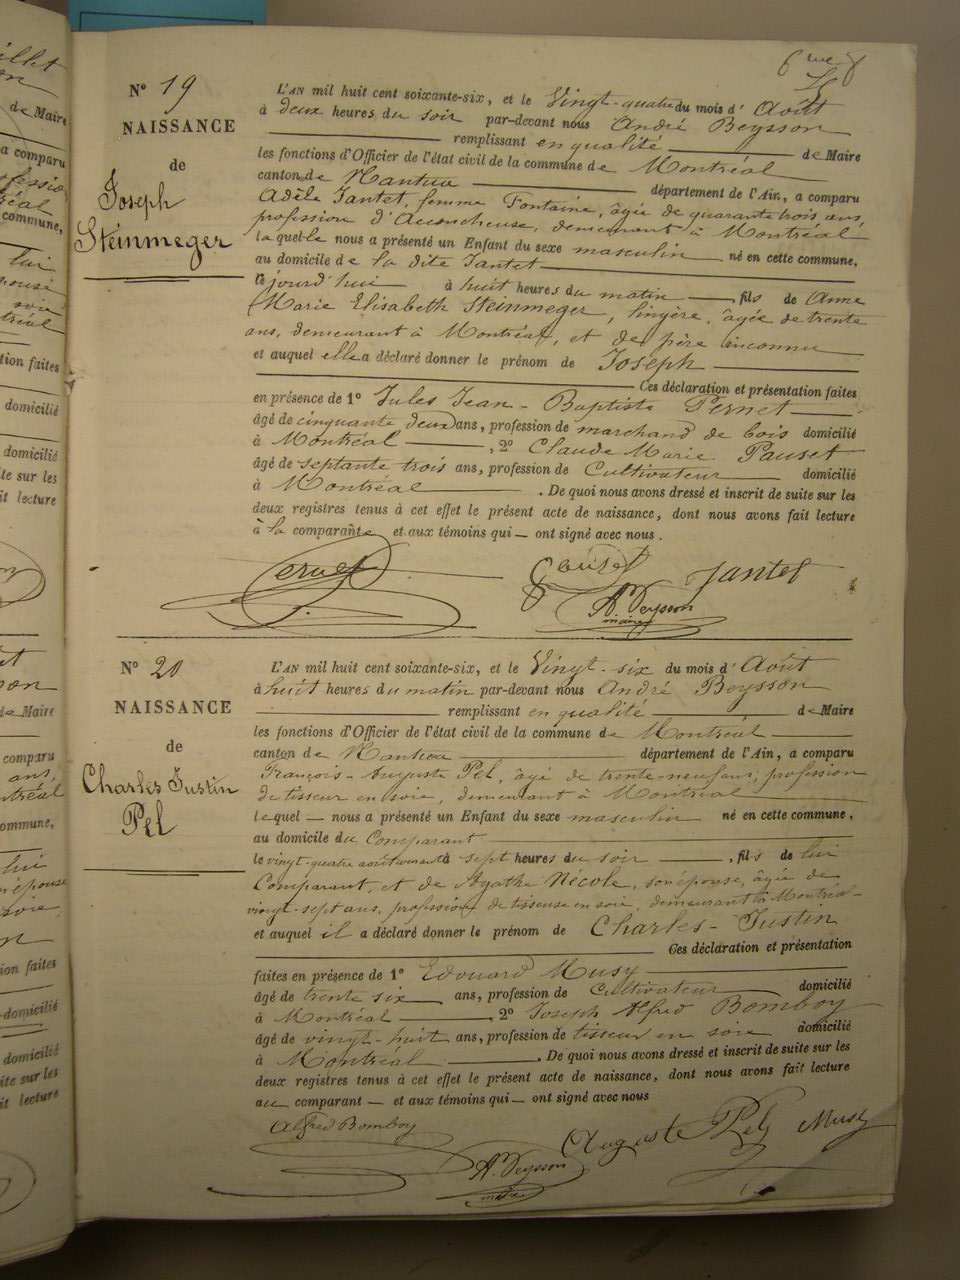 Nº 19
NAISSANCE
de
Joseph
Steinmeger
L'AN mil huit cent soixante-six, et le Vingt-quatre du mois d'Août
à deux heures du soir par-devant nous André Beysson
remplissant en qualité de Maire
les fonctions d'Officier de l'état civil de la commune de Montréal
canton de Nantua département de l'Ain, a comparu
Adèle Jantet, femme Fontaine, âgée de quarante trois ans,
profession d'Accoucheuse, demeurant à Montréal
laquelle nous a présenté un Enfant du sexe masculin né en cette commune,
au domicile de la dite Jantet
le jourd'hui à huit heures du matin, fils de Anne
Marie Elisabeth Steinmeger, lingère, âgée de trente
ans, demeurant à Montréal, et de père inconnu
et auquel elle a déclaré donner le prénom de Joseph
Ces déclaration et présentation faites
en présence de 1º Jules Jean-Baptiste Pernet
âgé de cinquante deux ans, profession de marchand de bois domicilié
à Montréal, 2º Claude Marie Pauset
âgé de septante trois ans, profession de Cultivateur domicilié
à Montréal. De quoi nous avons dressé et inscrit de suite sur les
deux registres tenus à cet effet le présent acte de naissance, dont nous avons fait lecture
à la comparante et aux témoins qui — ont signé avec nous.
Pernet Pauset Jantet
A. Beysson
maire
Nº 20
NAISSANCE
de
Charles Justin
Pel
L'AN mil huit cent soixante-six, et le Vingt-six du mois d'Août
à huit heures du matin par-devant nous André Beysson
remplissant en qualité de Maire
les fonctions d'Officier de l'état civil de la commune de Montréal
canton de Nantua département de l'Ain, a comparu
François-Auguste Pel, âgé de trente-neuf ans, profession
de tisseur en soie, demeurant à Montréal
lequel — nous a présenté un Enfant du sexe masculin né en cette commune,
au domicile du Comparant
le vingt-quatre août courant à sept heures du soir, fils de lui
Comparant, et de Agathe Nécole, son épouse, âgée de
vingt-sept ans, profession de tisseuse en soie, demeurant à Montréal
et auquel il a déclaré donner le prénom de Charles-Justin
Ces déclaration et présentation
faites en présence de 1º Edouard Musy
âgé de trente six ans, profession de Cultivateur domicilié
à Montréal 2º Joseph Alfred Bomboy
âgé de vingt-huit ans, profession de tisseur en soie domicilié
à Montréal. De quoi nous avons dressé et inscrit de suite sur les
deux registres tenus à cet effet le présent acte de naissance, dont nous avons fait lecture
au comparant — et aux témoins qui — ont signé avec nous
Alfred Bomboy
Auguste Pel Musy
A. Beysson
maire